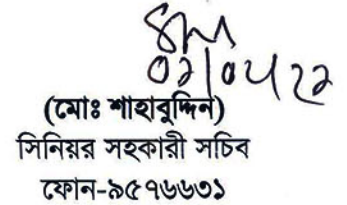 ০২/০৫/২২
(মোঃ শাহাবুদ্দিন)
সিনিয়র সহকারী সচিব
ফোন-৯৫৭৬৬৩১